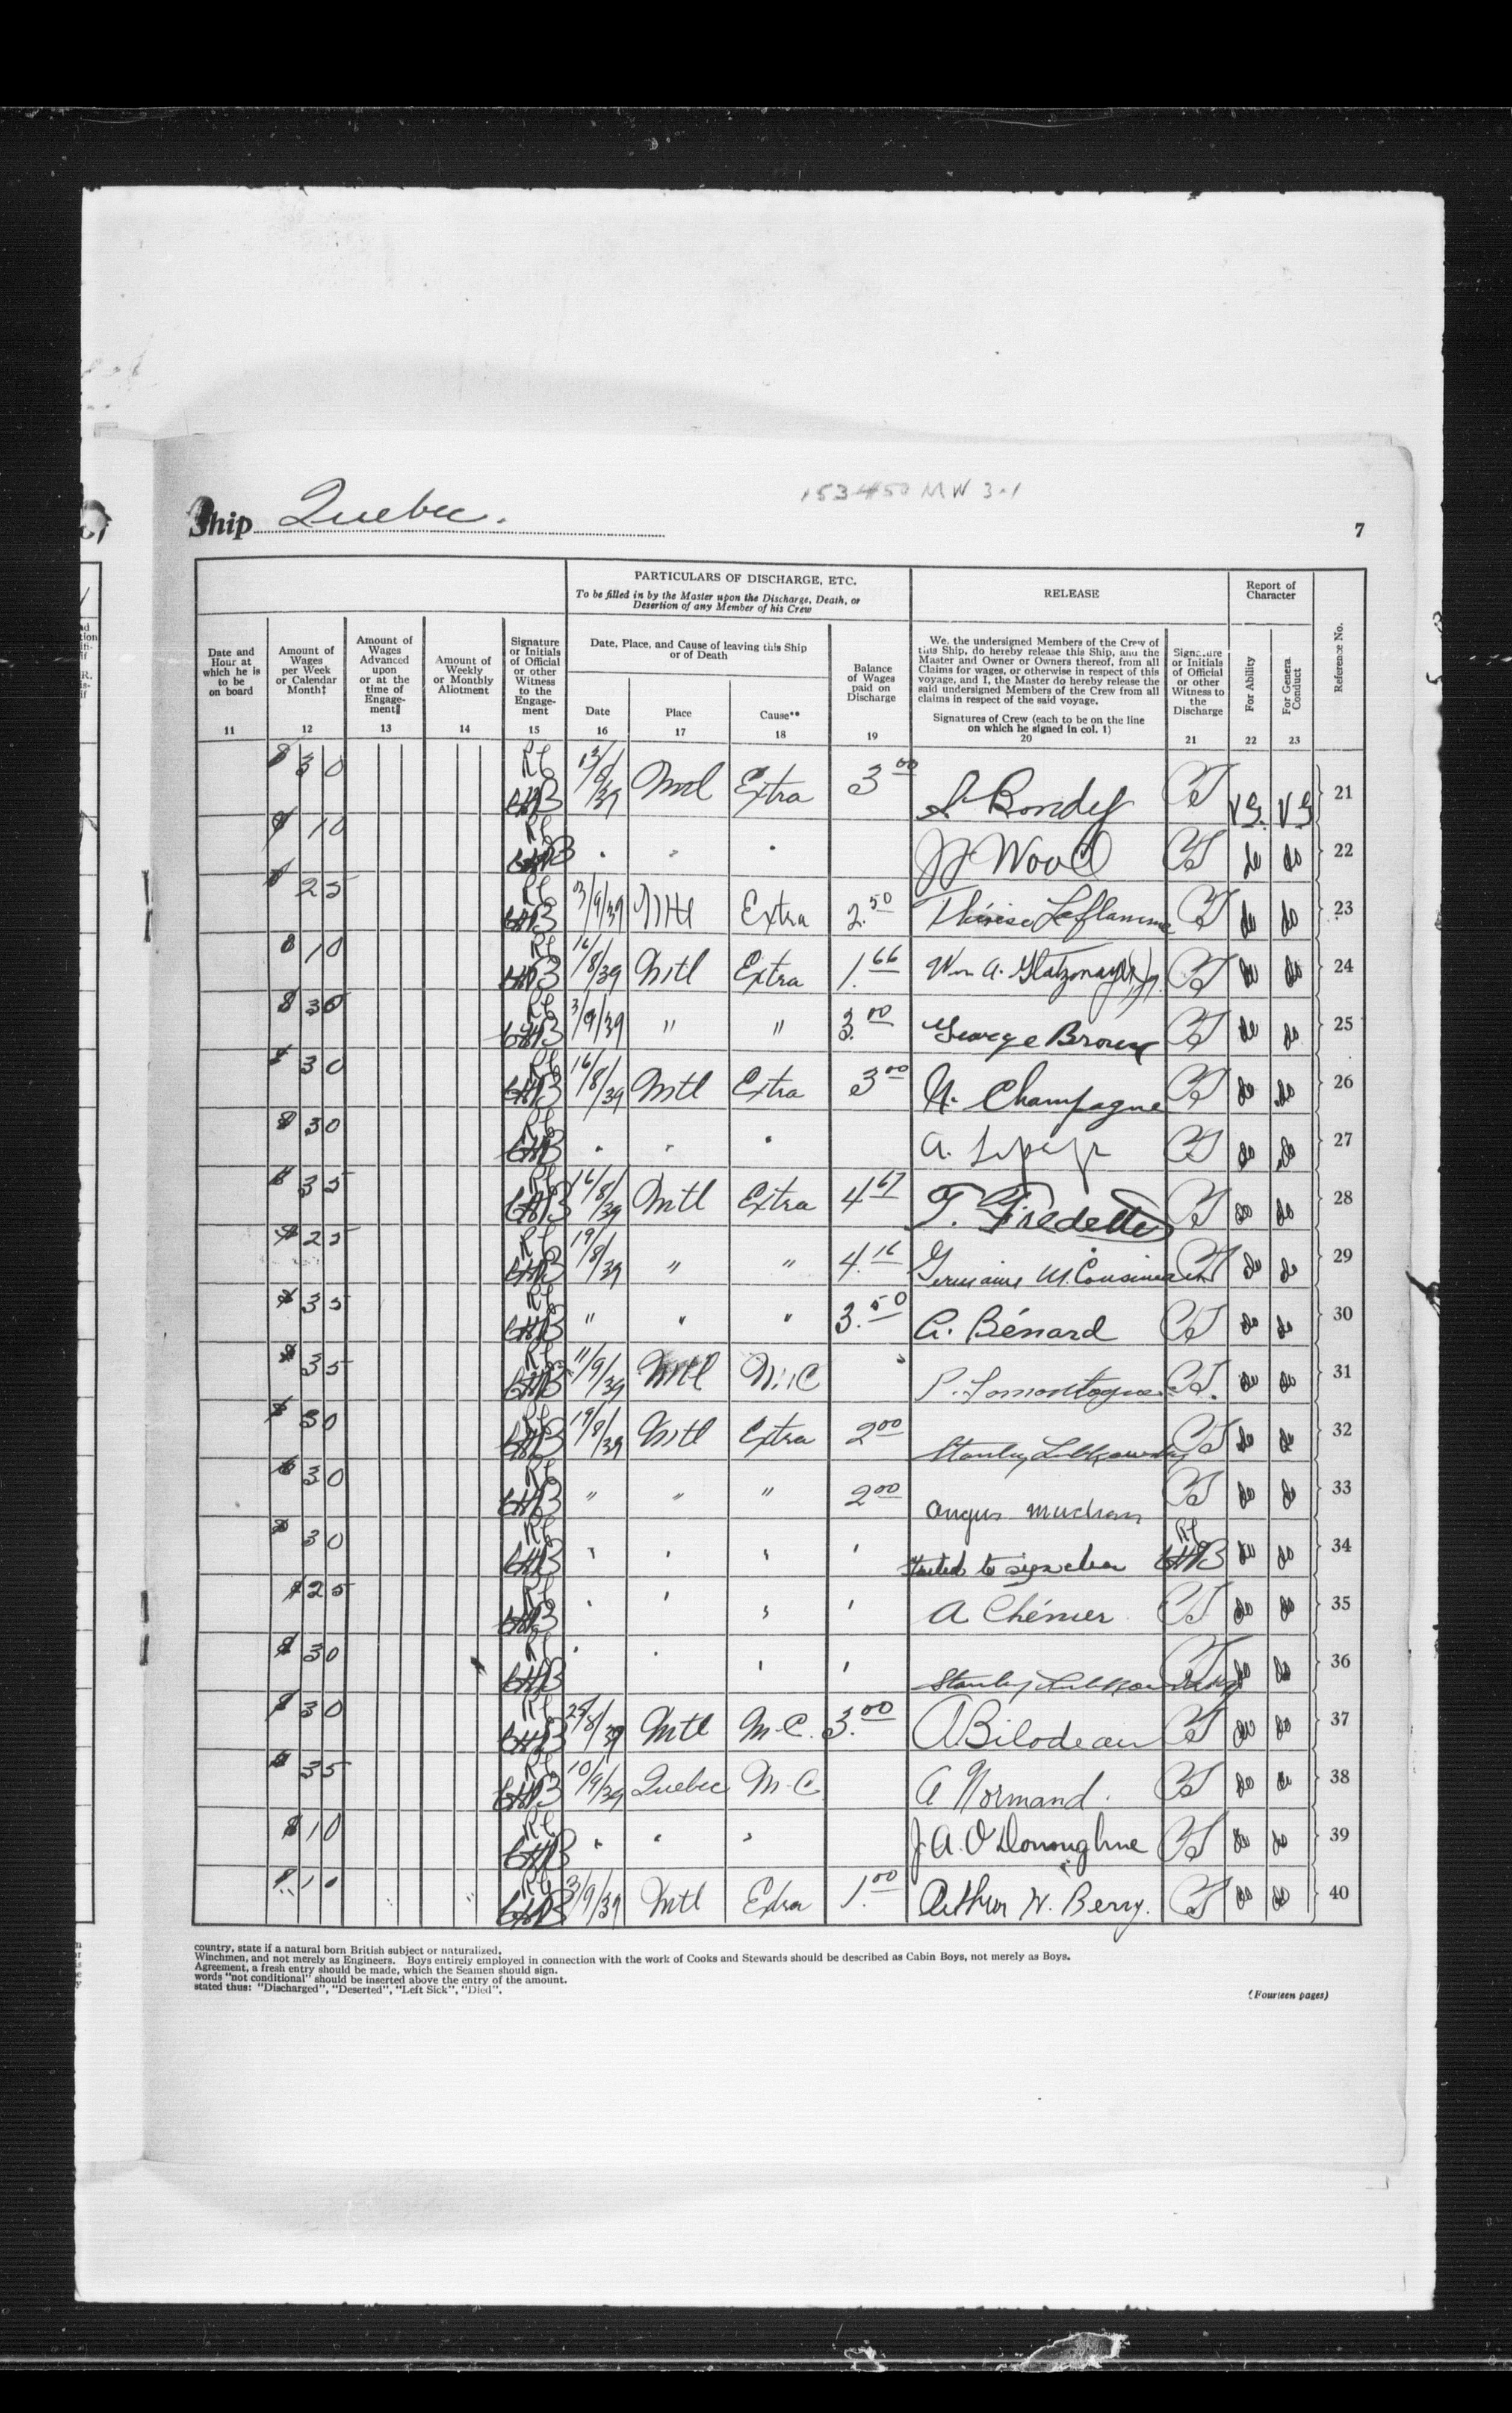 153450 MW 3-1
Ship Quebec.
7
PARTICULARS OF DISCHARGE, ETC.
To be filled in by the Master upon the Discharge, Death, or
Desertion of any Member of his Crew
RELEASE
Report of
Character
Reference No.
Date and
Hour at
which he is
to be
on board
11
Amount of
Wages
per Week
or Calendar
Month‡
12
Amount of
Wages
Advanced
upon
or at the
time of
Engage-
ment‖
13
Amount of
Weekly
or Monthly
Allotment
14
Signature
or Initials
of Official
or other
Witness
to the
Engage-
ment
15
Date, Place, and Cause of leaving this Ship
or of Death
Date
16
Place
17
Cause**
18
Balance
of Wages
paid on
Discharge
19
We, the undersigned Members of the Crew of
this Ship, do hereby release this Ship, and the
Master and Owner or Owners thereof, from all
Claims for wages, or otherwise in respect of this
voyage, and I, the Master do hereby release the
said undersigned Members of the Crew from all
claims in respect of the said voyage.
Signatures of Crew (each to be on the line
on which he signed in col. 1)
20
Signature
or Initials
of Official
or other
Witness to
the
Discharge
21
For Ability
22
For General
Conduct
23
$ 30 Extra 3 00 Bondy VG. VG 21
$ 10 " " " Wood do do 22
$ 25 3/9/39 Mtl Extra 2.50 Thérèse Laflamme do do 23
$ 10 16/8/39 Mtl Extra 1.66 Wm A. do do 24
$ 30 3/9/39 " " 3.00 George Brown do do 25
$ 30 16/8/39 Mtl Extra 3 00 Champagne do do 26
$ 30 " " " A. do do 27
$ 35 16/8/39 Mtl Extra 4 67 T. Fredette do do 28
$ 25 19/8/39 " " 4.16 Germaine M. Cousineau do do 29
$ 35 " " " 3.50 A. Bénard do do 30
$ 35 11/9/39 Mtl M.C " P. Lamontagne do do 31
$ 30 19/8/39 Mtl Extra 2 00 Stanley do do 32
$ 30 " " " 2 00 Angus do do 33
$ 30 " " " " to sign do do 34
$ 25 " " " " A Chénier do do 35
$ 30 " " " " Stanley do do 36
$ 30 Mtl M.C. 3.00 A Bilodeau do do 37
$ 35 10/9/39 Quebec M.C A Normand. do do 38
$ 10 " " " J. A. O'Donoghue do do 39
$ 10 3/9/39 Mtl Extra 1.00 Arthur W. Berry. do do 40
country, state if a natural born British subject or naturalized.
Winchmen, and not merely as Engineers. Boys entirely employed in connection with the work of Cooks and Stewards should be described as Cabin Boys, not merely as Boys.
Agreement, a fresh entry should be made, which the Seamen should sign.
words "not conditional" should be inserted above the entry of the amount.
stated thus: "Discharged", "Deserted", "Left Sick", "Died".
(Fourteen pages)